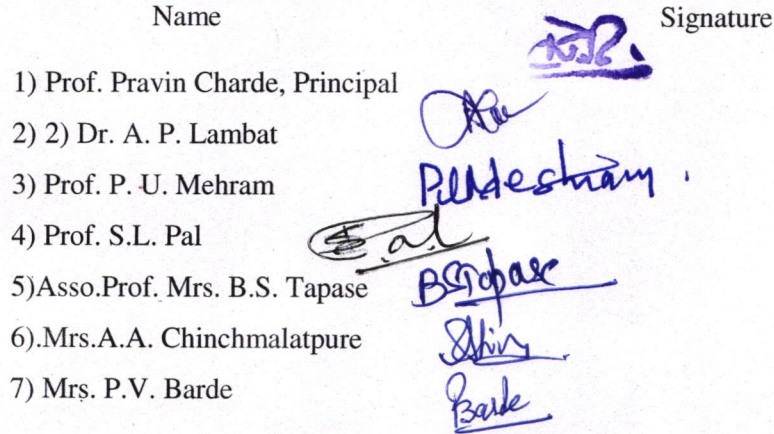 Name Signature
1) Prof. Pravin Charde, Principal
2) 2) Dr. A. P. Lambat
3) Prof. P. U. Mehram
4) Prof. S.L. Pal
5)Asso.Prof. Mrs. B.S. Tapase BSTapase
6).Mrs.A.A. Chinchmalatpure
7) Mrs. P.V. Barde Barde